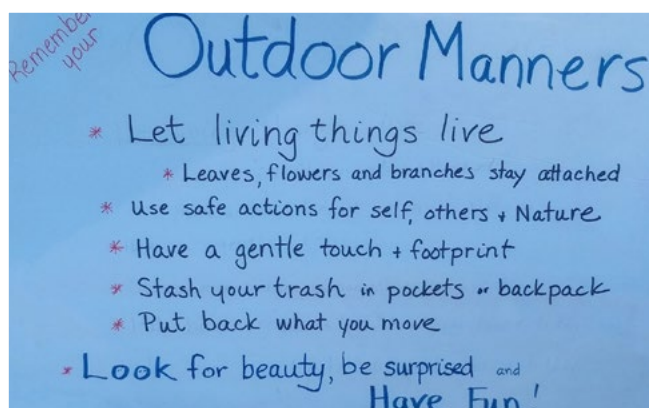 Remember
your
Outdoor Manners
* Let living things live
* Leaves, flowers and branches stay attached
* Use safe actions for self, others + Nature
* Have a gentle touch + footprint
* Stash your trash in pockets or backpack
* Put back what you move
* Look for beauty, be surprised and
Have Fun!